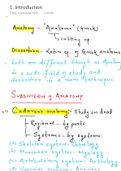 1. Introduction
Anatomy - "Anatome" (Greek)
cutting up
Dissection - Latin eq. of Greek anatome
- both are different though as Anatomy is a wide field of study and dissection is a mere technique.
Subdivision of Anatomy
Cadaveric anatomy: Study on dead
- Regional: by parts
- Systemic: by systems
(1) Skeleton system - Osteology
(2) Muscular system - Myology
(3) Articulatory system - Arthrology
(4) Vascular system - Angiology